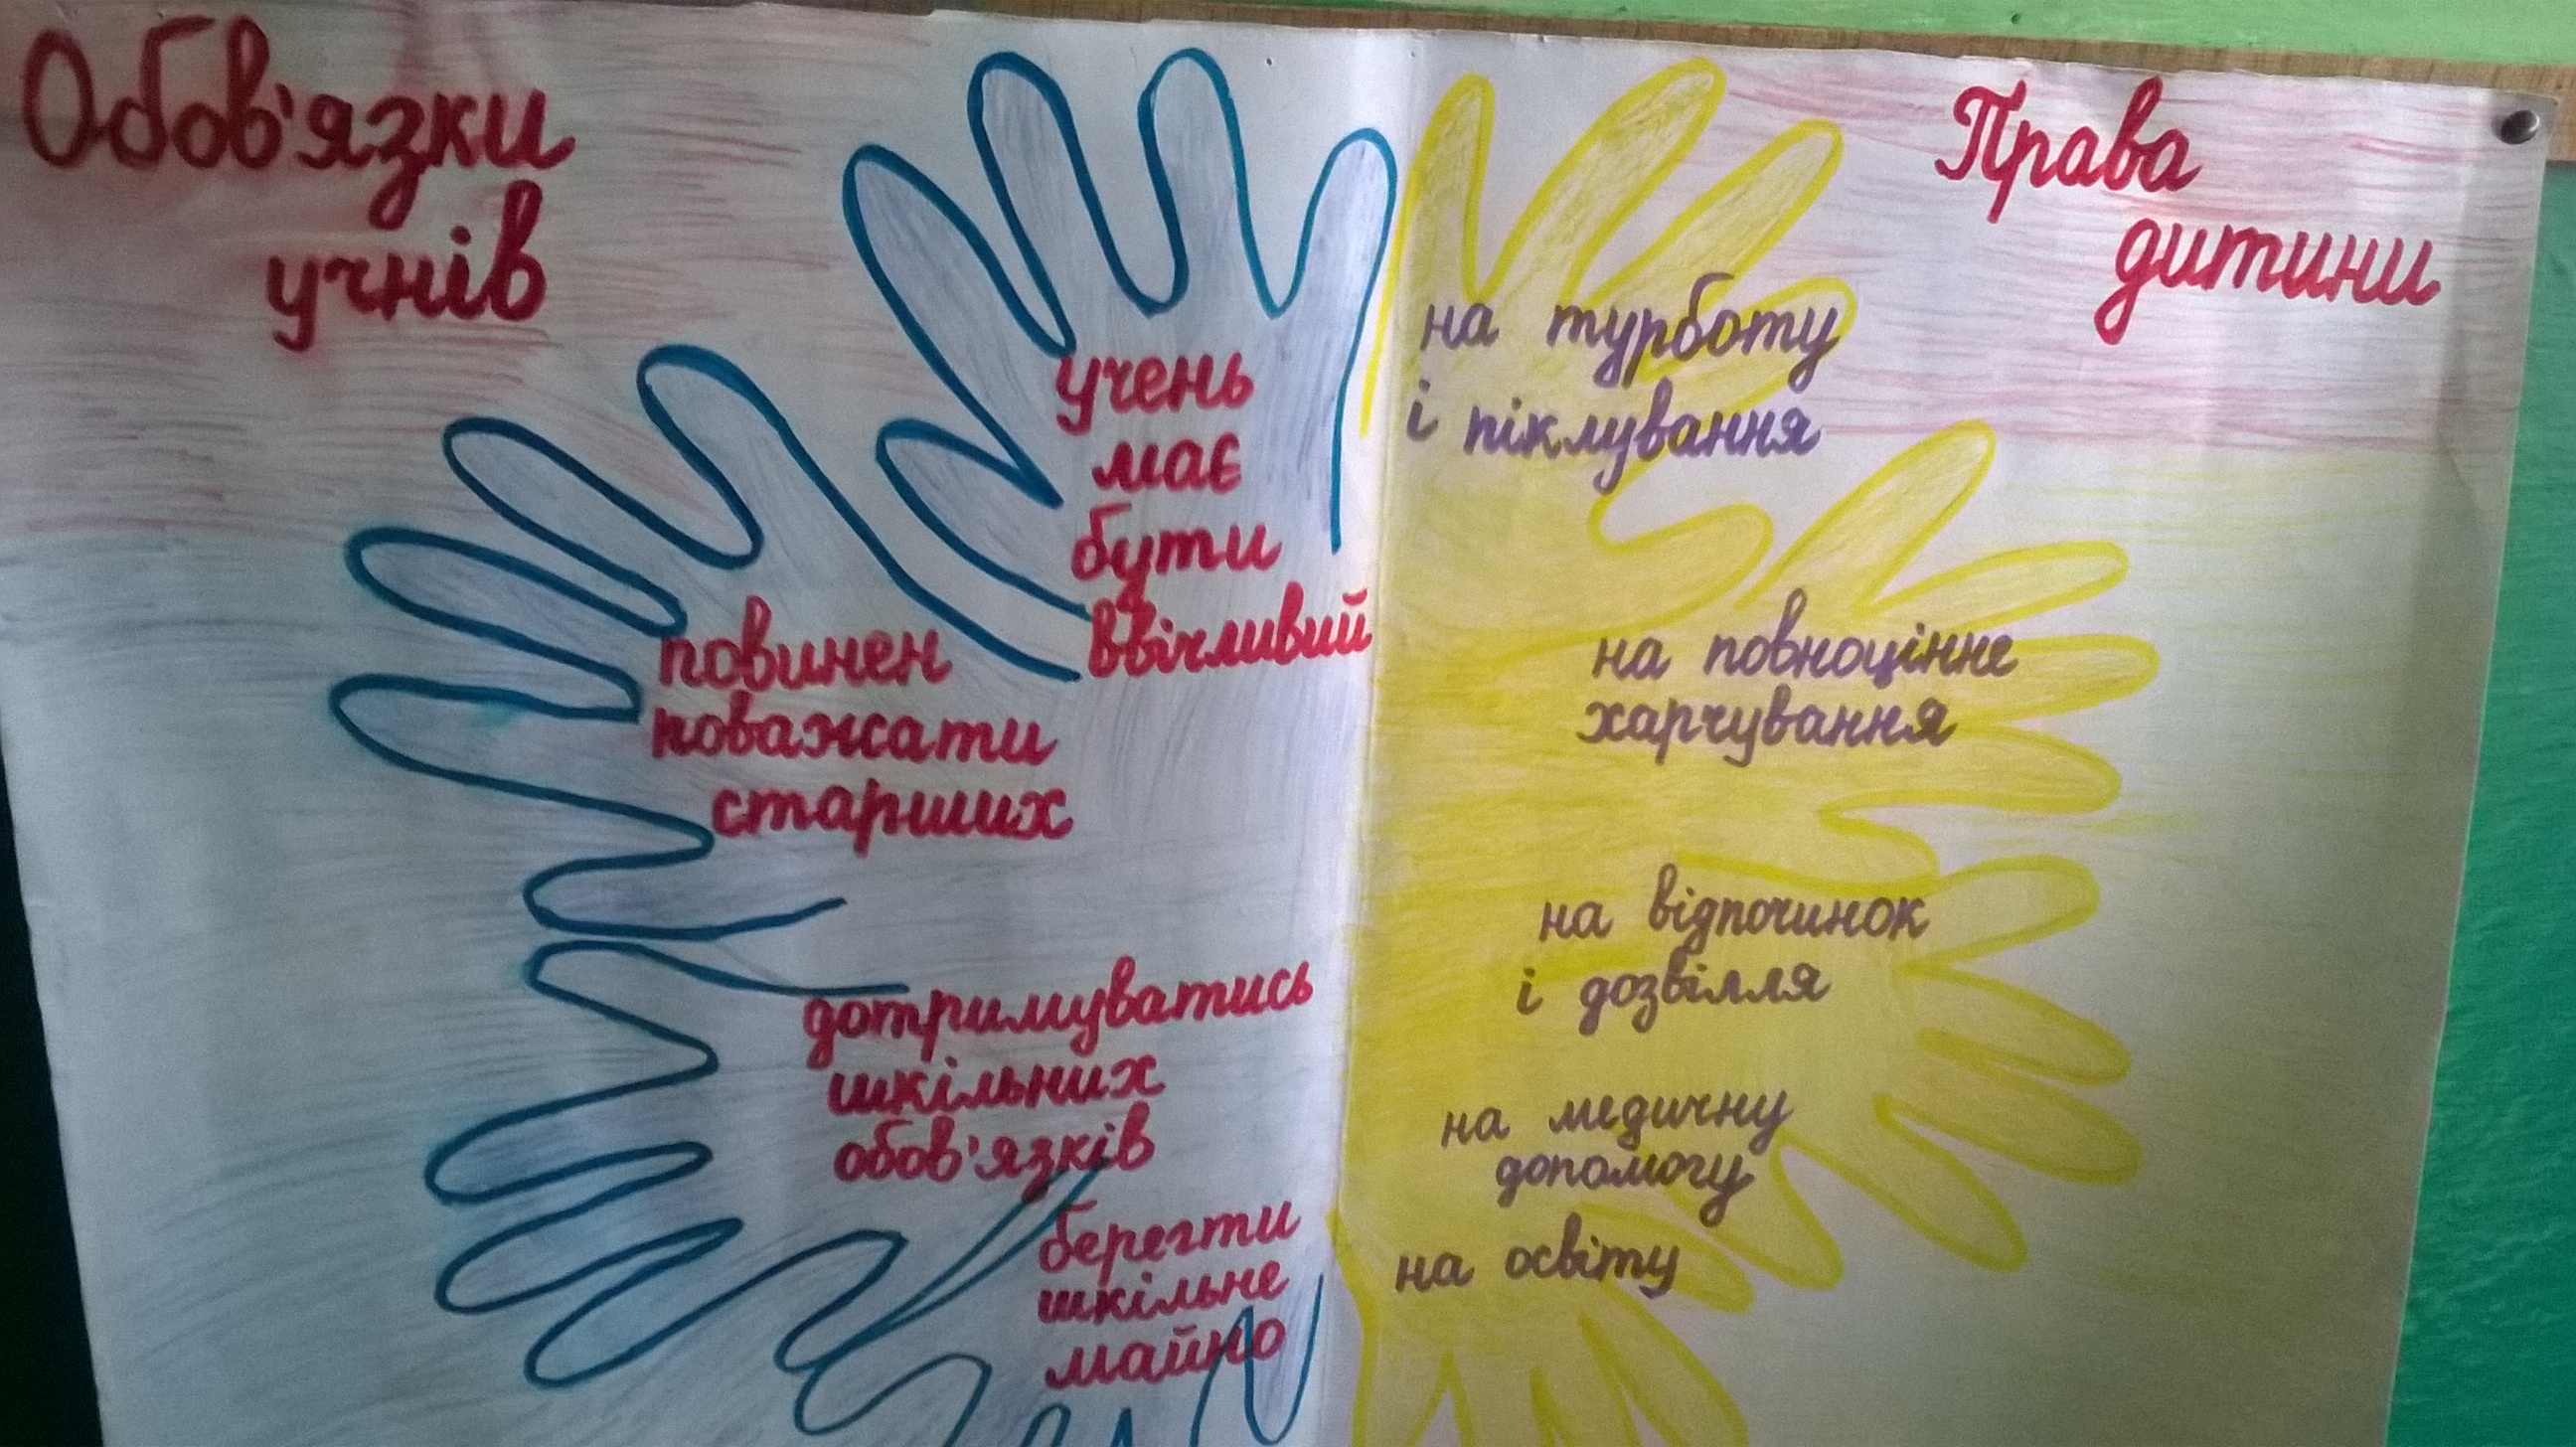 Обов'язки
учнів
учень
має
бути
ввічливий
повинен
поважати
старших
дотримуватись
шкільних
обов'язків
берегти
шкільне
майно
Права
дитини
на турботу
і піклування
на повноцінне
харчування
на відпочинок
і дозвілля
на медичну
допомогу
на освіту